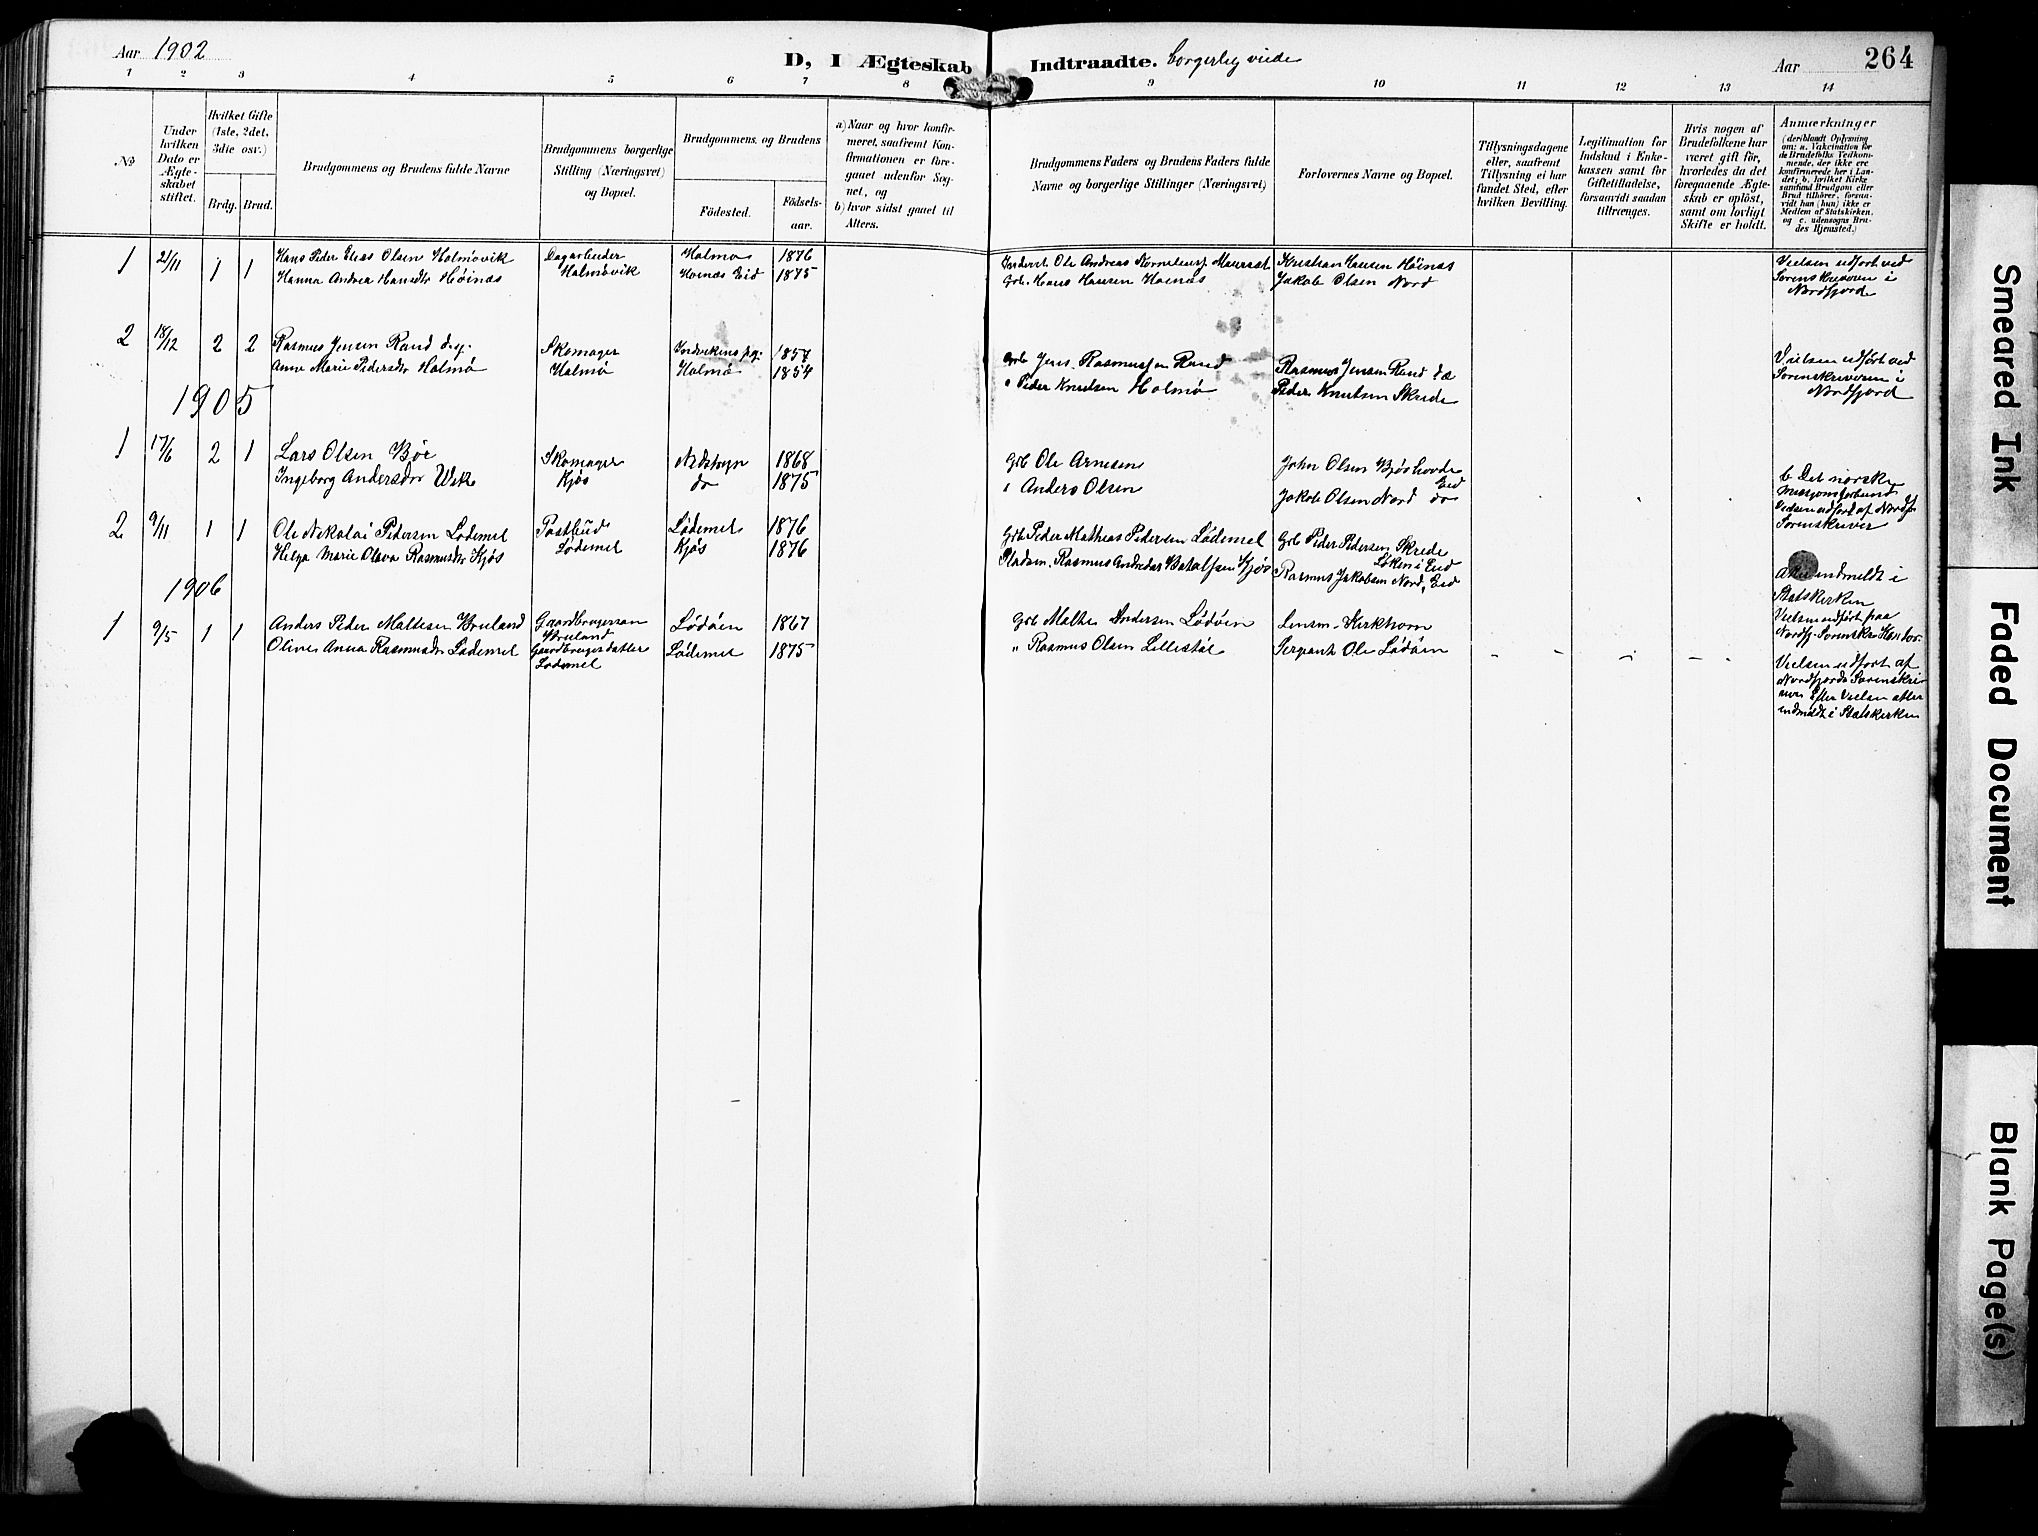 Aar 1902
D, I Ægteskab Indtraadte. borgerlig viede
Aar
264
1 2 3 4 5 6 7 8 9 10 11 12 13 14
No
Under hvilken Dato er Ægteskabet stiftet.
Hvilket Gifte (1ste, 2det, 3die osv.)
Brdg. Brud.
Brudgommens og Brudens fulde Navne
Brudgommens borgerlige Stilling (Næringsvei) og Bopæl.
Brudgommens og Brudens
Födested.
Födselsaar.
a) Naar og hvor konfirmeret, saafremt Konfirmationen er foregaaet udenfor Sognet, og
b) hvor sidst gaaet til Alters.
Brudgommens Faders og Brudens Faders fulde Navne og borgerlige Stillinger (Næringsvei)
Forlovernes Navne og Bopæl.
Tillysningsdagene eller, saafremt Tillysning ei har fundet Sted, efter hvilken Bevilling.
Legitimation for Indskud i Enkekassen samt for Giftetilladelse, forsaavidt saadan tiltrænges.
Hvis nogen af Brudefolkene har været gift för, hvorledes da det foregaaende Ægteskab er oplöst, samt om lovligt Skifte er holdt.
Anmærkninger
(deriblandt Oplysning om: a. Vakcination for de Brudefolks Vedkommende, der ikke ere konfirmerede her i Landet; b. hvilket Kirkesamfund Brudgom eller Brud tilhörer, forsaavidt han (hun) ikke er Medlem af Statskirken, og c. udensogns Brudes Hjemsted.)
1 21/11 1 1 Hans Peder Elias Olsen Holmövik Dagarbeider Holmö 1876 Ole Andreas Kristian Hansen Höinæs Vielsen udfört ved
Hanna Andrea Hansdtr Höinæs Holmövik Höinæs Eid 1875 Grb. Hans Hansen Höinæs Jakob Olsen Nord Sorenskriveren i
Nordfjord
2 18/12 2 2 Rasmus Jensen Rand Skomager 1857 Grb Jens Rasmussen Rand Rasmus Jensen Rand Vielsen udfört ved
Anne Marie Pedersdtr Holmö Holmö Holmö 1854 " Peder Knutsen Holmö Peder Knutsen Skrede Sorenskriveren i
Nordfjord
1905
1 17/6 2 1 Lars Olsen Böe Skomager 1868 Grb Ole Arnesen John Olsen
Ingeborg Andersdtr Kjös do 1875 " Anders Olsen Eid b Det norske
Jakob Olsen Nord do Missionsforbund
2 9/11 1 1 Ole Nikolai Pedersen Lödemel Postbud Lödemel 1876 Grb Peder Mathias Pedersen Lödemel Grb Peder Pedersen Skrede Vielsen udfört af Nordfj. Sorenskriver
Helga Marie Olava Rasmusdtr Kjös Lödemel Kjös 1876 Pladsm. Rasmus Andreas Kjös i Eid
Rasmus Jakobsen Nord, Eid indmeldt i
1906 Statskirken
Vielsen udfört paa
1 9/5 1 1 Anders Peder Maltesen Gaardbrugersön Lödöen 1867 Grb Malthe Andersen Lödöen Lensm. Kirkhorn Nordfj. Sorenskr. Kontor
Oline Anna Rasmusdtr Lödemel Gaardbrugerdatter Lödemel 1875 " Rasmus Olsen Lillestöl Sergeant Ole Lödöen
Lödemel
Vielsen udfört af
Nordfjords Sorenskriver
Efter Vielsen atter
indmeldt i Statskirken
Smeared Ink
Faded Document
Blank Page(s)